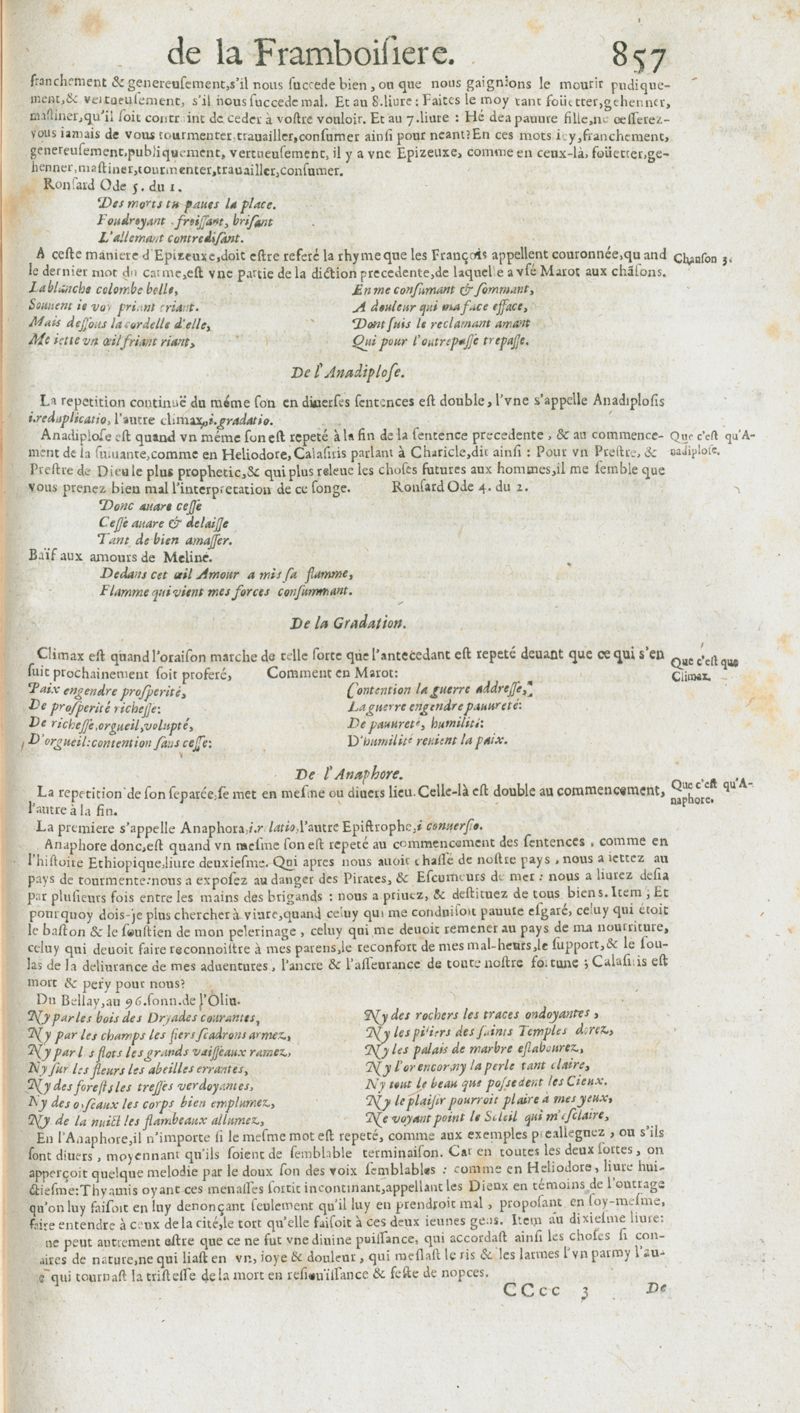 de la Framboiſiere. 857
franchement & genereuſement,s'il nous ſuccede bien, ou que nous gaignions le mourir pudique-
ment,& vertueuſement, s'il nous ſuccede mal. Et au 8.liure: Faites le moy tant foüetter,gehenner,
maſtiner,qu'il ſoit contr int de ceder à voſtre vouloir. Et au 7.liure : Hé dea pauure fille,ne ceſſerez-
vous iamais de vous tourmenter,trauailler,conſumer ainſi pour neant? En ces mots icy,franchement,
genereuſement,publiquement, vertueuſement, il y a vne Epizeuxe, comme en ceux-là, foüetter,ge-
henner,maſtiner,tourmenter,trauailler,conſumer.
Ronſard Ode 5. du 1.
Des morts tu paues la place.
Foudroyant, froiſſant, briſant
L'allemant contrediſant.
A ceſte maniere d'Epizeuxe,doit eſtre referé la rhyme que les François appellent couronnée,quand Chanſon 3.
le dernier mot du carme,eſt vne partie de la diction precedente,de laquelle a vſé Marot aux chãſons.
La blanche colombe belle, En me conſumant & ſommant,
Souuent ie voy priant criant. A douleur qui ma face efface,
Mais deſſous la cordelle d'elle, Dont ſuis le reclamant amant
Me iette vn œil friant riant, Qui pour l'outrepaſſe trepaſſe.
De l'Anadiploſe.
La repetition continuë du méme ſon en diuerſes ſentences eſt double, l'vne s'appelle Anadiploſis
i.reduplicatio, l'autre climax,i.gradatio.
Anadiploſe eſt quand vn méme ſon eſt repeté à la fin de la ſentence precedente , & au commence- Que c'eſt qu'A-
ment de la ſuiuante,comme en Heliodore, Calaſiris parlant à Charicle,dit ainſi : Pour vn Preſtre, & nadiploſe.
Preſtre de Dieu le plus prophetic,& qui plus releue les choſes futures aux hommes,il me ſemble que
vous prenez bien mal l'interpretation de ce ſonge. Ronſard Ode 4. du 2.
Donc auare ceſſe
Ceſſe auare & delaiſſe
Tant de bien amaſſer.
Baïf aux amours de Meline.
Dedans cet œil Amour a mis ſa flamme,
Flamme qui vient mes forces conſummant.
De la Gradation.
Climax eſt quand l'oraiſon marche de telle ſorte que l'antecedant eſt repeté deuant que ce qui s'en Que c'eſt que
ſuit prochainement ſoit proferé, Comment en Marot: Climax.
Paix engendre proſperité, Contention la guerre addreſſe,
De proſperité richeſſe: La guerre engendre pauureté:
De richeſſe,orgueil,volupté, De pauureté, humilité:
D'orgueil:contention ſans ceſſe: D'humilité reuient la paix.
De l'Anaphore.
La repetition de ſon ſeparée,ſe met en meſme ou diuers lieu. Celle-là eſt double au commencement, Que c'eſt qu'A-
l'autre à la fin. naphore.
La premiere s'appelle Anaphora,i.r latio,l'autre Epiſtrophe,i conuerſio.
Anaphore donc,eſt quand vn meſme ſon eſt repeté au commencement des ſentences , comme en
l'hiſtoire Ethiopique,liure deuxieſme. Qui apres nous auoir chaſſé de noſtre pays , nous a iettez au
pays de tourmente:nous a expoſez au danger des Pirates, & Eſcumeurs de mer : nous a liurez deſia
par pluſieurs fois entre les mains des brigands : nous a priuez, & deſtituez de tous biens. Item ; Et
pourquoy dois-je plus chercher à viure,quand celuy qui me conduiſoit pauure eſgaré, celuy qui étoit
le baſton & le ſouſtien de mon pelerinage , celuy qui me deuoit remener au pays de ma nourriture,
celuy qui deuoit faire reconnoiſtre à mes parens,le reconfort de mes mal-heurs,le ſupport,& le ſou-
las de la deliurance de mes aduentures , l'ancre & l'aſſeurance de toute noſtre fortune ; Calaſiris eſt
mort & pery pour nous?
Du Bellay,au 96.ſonn.de l'Oliu.
Ny par les bois des Dryades courantes, Ny des rochers les traces ondoyantes ,
Ny par les champs les fiers ſcadrons armez, Ny les piliers des ſaints Temples dorez,
Ny par l s flots les grands vaiſſeaux ramez, Ny les palais de marbre eſlabourez,
Ny ſur les fleurs les abeilles errantes, Ny l'or encor,ny la perle tant claire,
Ny des foreſts les treſſes verdoyantes, Ny tout le beau que poſſedent les Cieux.
Ny des oyſeaux les corps bien emplumez, Ny le plaiſir pourroit plaire à mes yeux,
Ny de la nuict les flambeaux allumez, Ne voyant point le Soleil qui m'eſclaire,
En l'Anaphore,il n'importe ſi le meſme mot eſt repeté, comme aux exemples preallegnez , ou s'ils
ſont diuers , moyennant qu'ils ſoient de ſemblable terminaiſon. Car en toutes les deux ſortes , on
apperçoit quelque melodie par le doux ſon des voix ſemblables : comme en Heliodore, liure hui-
ctieſme:Thyamis oyant ces menaſſes ſortit incontinant,appellant les Dieux en témoins de l'outrage
qu'on luy faiſoit en luy denonçant ſeulement qu'il luy en prendroit mal , propoſant en ſoy-meſme,
faire entendre à ceux de la cité,le tort qu'elle faiſoit à ces deux ieunes gens. Item au dixieſme liure:
ne peut autrement eſtre que ce ne fut vne diuine puiſſance, qui accordaſt ainſi les choſes ſi con-
aires de nature,ne qui liaſt en vn, ioye & douleur , qui meſlaſt le ris & les larmes l'vn parmy l'au-
e qui tournaſt la triſteſſe de la mort en reſiouïſſance & feſte de nopces.
CCcc 3 De